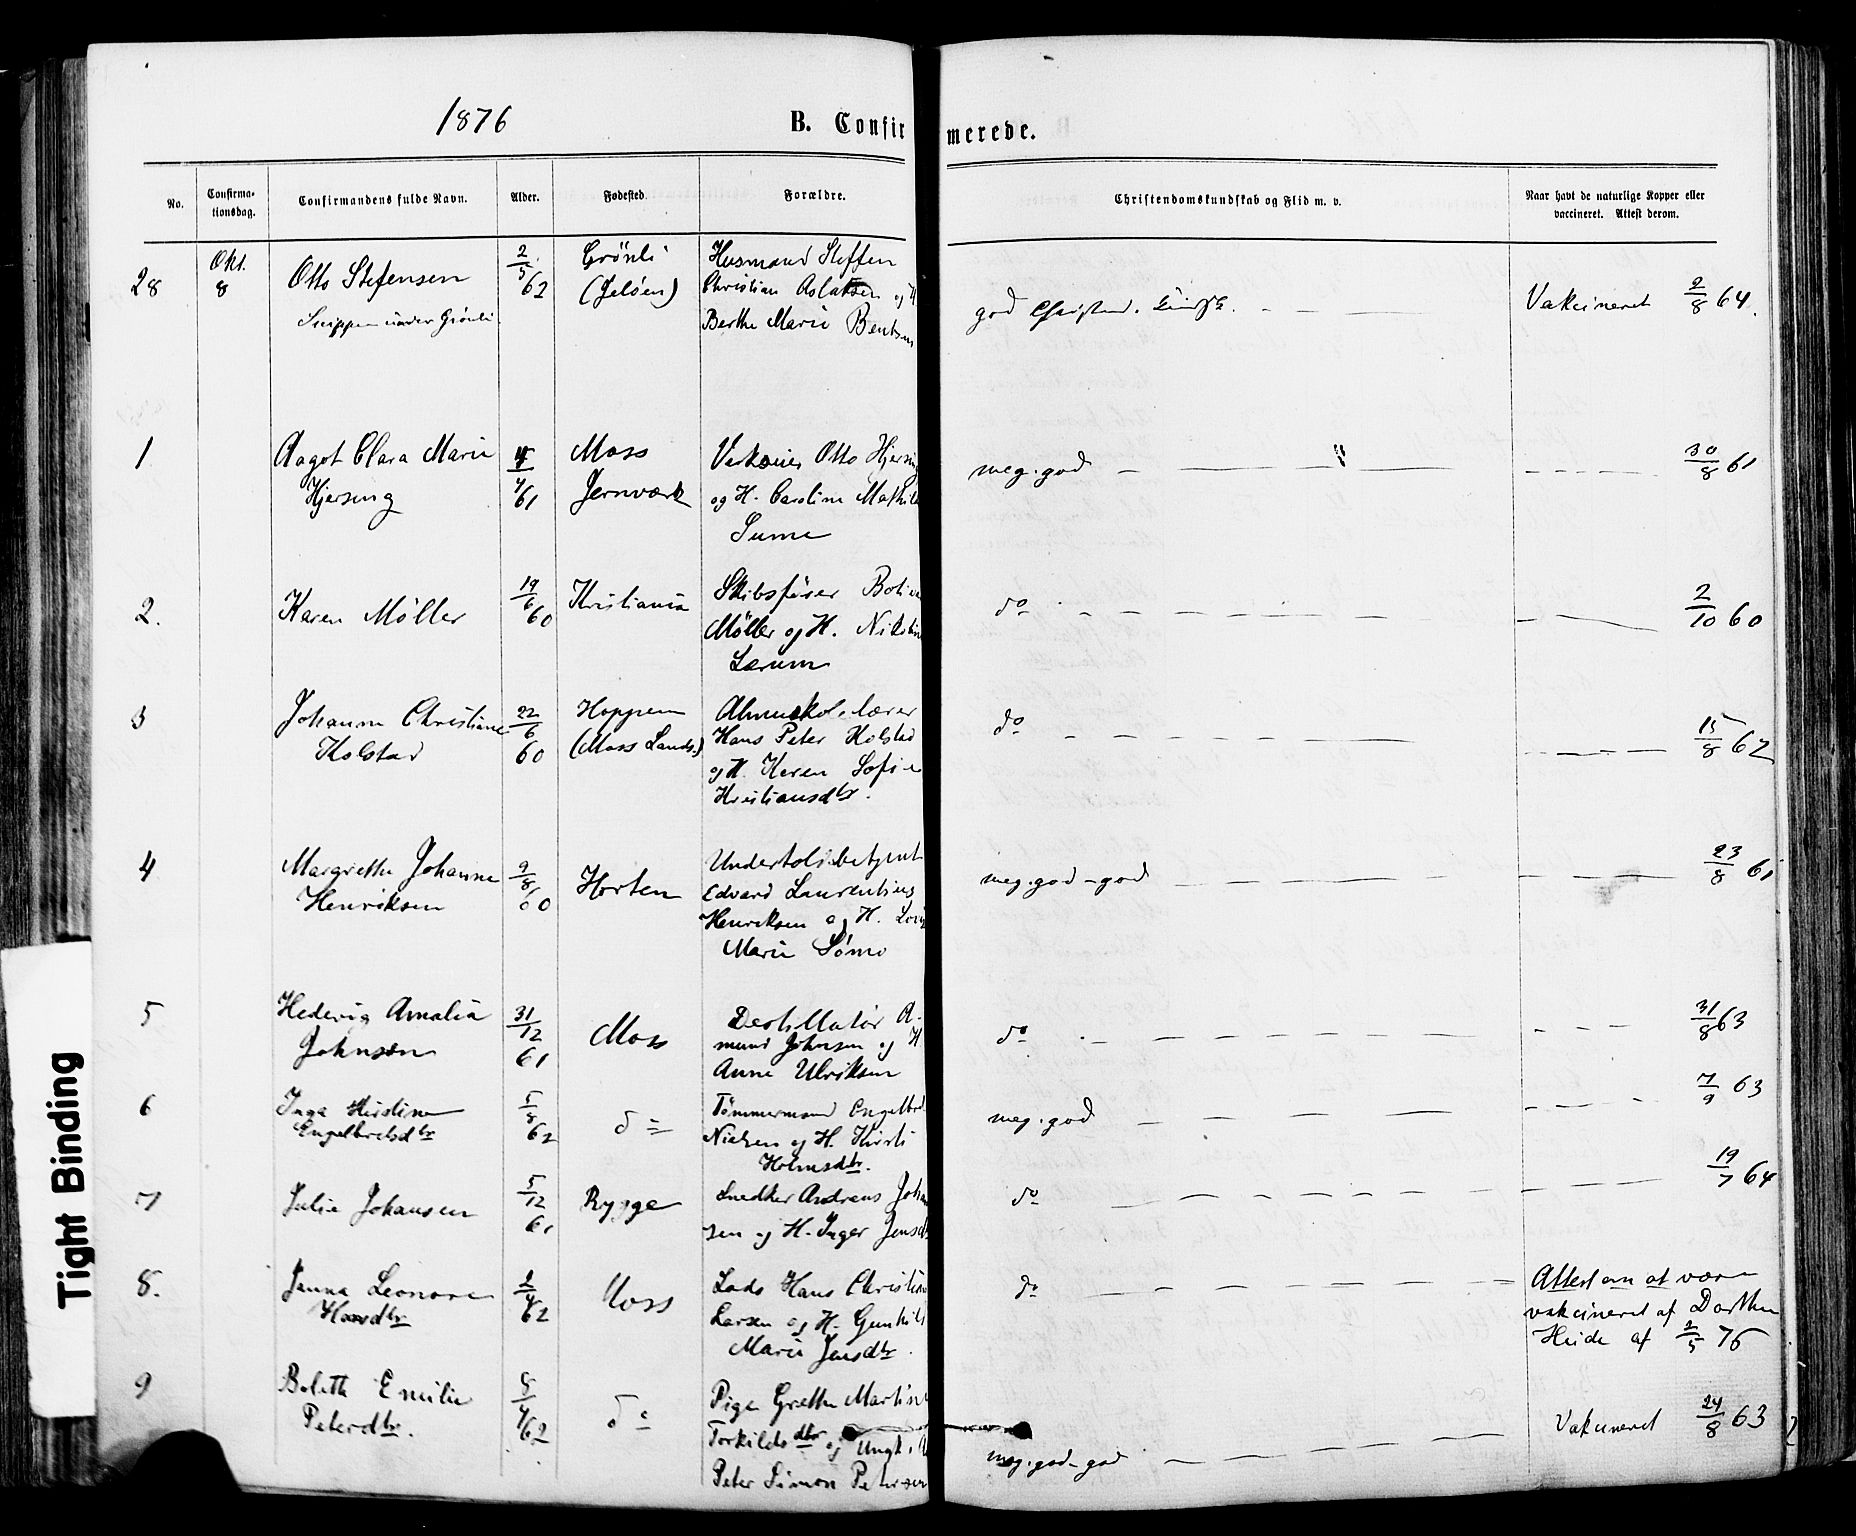 1876
B. Confirmerede.
No.
Confirma-
tionsdag.
Confirmandens fulde Navn.
Alder.
Fødested.
Forældre.
Christendomskundskab og Flid m. v.
Naar havt de naturlige Kopper eller
vaccineret. Attest derom.
28
Okt.
8
Otto Stefensen
under Grönli
2/5 62
Grönli
(Jelöen)
Husmand Steffen
Christian Aslaksen og H
Berthe Marie Bentsen
god Christend.
Vakcineret 2/8 64.
1
Aagot Clara Marie
Hjersing
4/61
Moss
Jernværk
Otto Hjersing
og H. Caroline Mathil
Sume
meg. god
30/8 61
2.
Karen Möller
19/6 60
Kristiania
Skibsförer
Möller og H.
Lærum
do
2/10 60
3
Johanne Christiane
Kolstad
22/6 60
Hoppern
(Moss Lands.)
Almueskol. lærer
Hans Peter Kolstad
og H. Karen Sofie
Kristiansdtr.
do
15/8 62
4
Margrethe Johanne
Henriksen
9/8 60
Horten
Undertolsbetjent
Edvard Laurentius
Henriksen og H.
Marie Sömo
meg. god - god
23/8 61
5
Hedevig Amalia
Johnsen
31/12 61
Moss
Destillatör A-
mund Johnsen og H
Anne Ulriksen
do
31/8 63
6
Inga Kirstine
Engelbretsdtr
5/8 62
do
Tömmermand Engelbret
Nielsen og H. Kirsti
Holmsdtr.
meg. god
7/9 63
7
Julie Johansen
5/12 61
Rygge
Snedker Andreas Johan
sen og H. Inger Jensdtr
do
19/7 64
8.
Janna Leonore
Hansdtr
2/4 62
Moss
Lods Hans Christian
Larsen og H. Gunhild
Marie Jensdtr.
do
Attest om at være
vakcineret af Dorthea
Heide af 2/5 76
9
Bolette Emilie
Petersdtr.
8/4 62
do
Pige Grethe Martine
Torkildsdtr og Ungk.
Peter Simon Petersen
meg. god - god
Vakcineret 24/8 63
Tight Binding